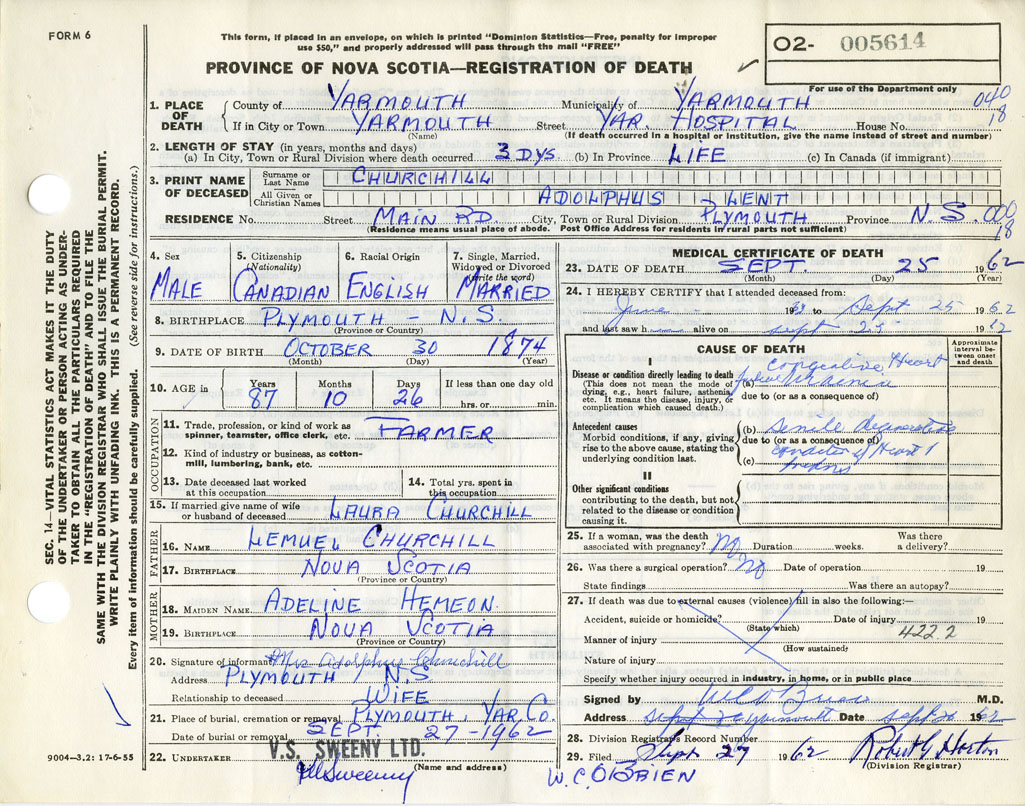 FORM 6
This form, if placed in an envelope, on which is printed "Dominion Statistics—Free, penalty for improper
use $50," and properly addressed will pass through the mail "FREE"
PROVINCE OF NOVA SCOTIA—REGISTRATION OF DEATH
O2- 005614
For use of the Department only
040
18
1. PLACE OF DEATH
County of YARMOUTH Municipality of YARMOUTH
If in City or Town YARMOUTH Street YAR. HOSPITAL House No.
(Name) (If death occurred in a hospital or institution, give the name instead of street and number)
2. LENGTH OF STAY (in years, months and days)
(a) In City, Town or Rural Division where death occurred 3 DYS. (b) In Province LIFE (c) In Canada (if immigrant)
3. PRINT NAME OF DECEASED
Surname or Last Name CHURCHILL
All Given or Christian Names ADOLPHUS LENT
RESIDENCE No. Street MAIN RD. City, Town or Rural Division PLYMOUTH Province N.S. 000
18
(Residence means usual place of abode. Post Office Address for residents in rural parts not sufficient)
4. Sex MALE
5. Citizenship (Nationality) CANADIAN
6. Racial Origin ENGLISH
7. Single, Married, Widowed or Divorced (Write the word) MARRIED
8. BIRTHPLACE PLYMOUTH - N.S.
(Province or Country)
9. DATE OF BIRTH OCTOBER 30 1874
(Month) (Day) (Year)
10. AGE in Years Months Days If less than one day old
87 10 26 hrs. or min.
OCCUPATION
11. Trade, profession, or kind of work as
spinner, teamster, office clerk, etc. FARMER
12. Kind of industry or business, as cotton-
mill, lumbering, bank, etc.
13. Date deceased last worked
at this occupation
14. Total yrs. spent in
this occupation
15. If married give name of wife
or husband of deceased LAURA CHURCHILL
FATHER
16. NAME LEMUEL CHURCHILL
17. BIRTHPLACE NOVA SCOTIA
(Province or Country)
MOTHER
18. MAIDEN NAME ADELINE HEMEON
19. BIRTHPLACE NOVA SCOTIA
(Province or Country)
20. Signature of informant Mrs Adolphus Churchill
Address PLYMOUTH N.S
Relationship to deceased WIFE
21. Place of burial, cremation or removal PLYMOUTH, YAR. CO.
Date of burial or removal SEPT. 27-1962
22. UNDERTAKER V.S. SWEENY LTD.
(Name and address)
Sweeny
MEDICAL CERTIFICATE OF DEATH
23. DATE OF DEATH SEPT. 25 1962
(Month) (Day) (Year)
24. I HEREBY CERTIFY that I attended deceased from:
June 19 to Sept 25 1962
and last saw h alive on sept 25 19
CAUSE OF DEATH
Approximate interval between onset and death
I
Disease or condition directly leading to death
(This does not mean the mode of
dying, e.g., heart failure, asthenia,
etc. It means the disease, injury, or
complication which caused death.)
(a) Congestive Heart
failure
due to (or as a consequence of)
Antecedent causes
Morbid conditions, if any, giving
rise to the above cause, stating the
underlying condition last.
(b) Senile degenerative
due to (or as a consequence of)
(c) condition of Heart
II
Other significant conditions
contributing to the death, but not
related to the disease or condition
causing it.
25. If a woman, was the death
associated with pregnancy? No Duration weeks. Was there
a delivery?
26. Was there a surgical operation? No Date of operation 19
State findings Was there an autopsy?
27. If death was due to external causes (violence) fill in also the following:—
Accident, suicide or homicide? Date of injury 19
(State which)
4222
Manner of injury
(How sustained)
Nature of injury
Specify whether injury occurred in industry, in home, or in public place
Signed by M.D.
Address Yarmouth Date sept 26 1962
28. Division Registrar's Record Number
29. Filed Sept 27 1962 Robert G Horton
(Division Registrar)
W.C. O'BRIEN
SEC. 14—VITAL STATISTICS ACT MAKES IT THE DUTY
OF THE UNDERTAKER OR PERSON ACTING AS UNDER-
TAKER TO OBTAIN ALL THE PARTICULARS REQUIRED
IN THE "REGISTRATION OF DEATH" AND TO FILE THE
SAME WITH THE DIVISION REGISTRAR WHO SHALL ISSUE THE BURIAL PERMIT.
WRITE PLAINLY WITH UNFADING INK. THIS IS A PERMANENT RECORD.
Every item of information should be carefully supplied. (See reverse side for instructions.)
9004—3.2: 17-6-55